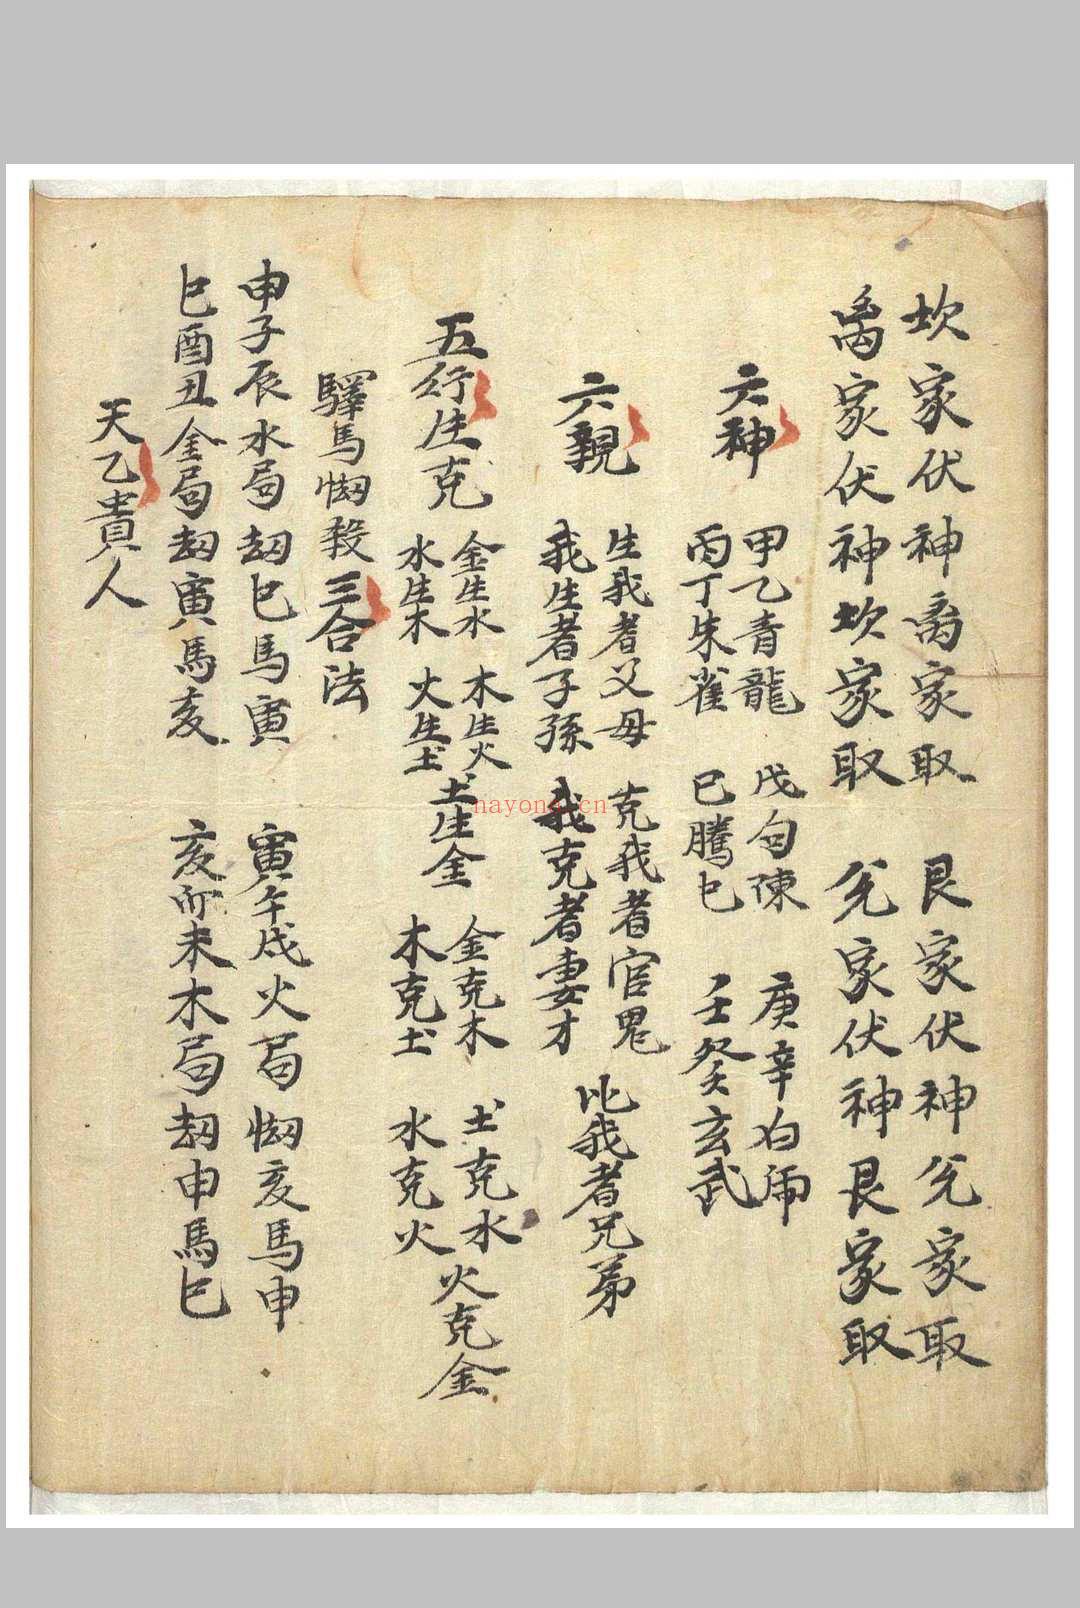 坎家伏神离家取　艮家伏神兑家取
离家伏神坎家取　兑家伏神艮家取
六神
甲乙青龍　戊勾陳　庚辛白虎
丙丁朱雀　巳騰巳　壬癸玄武
六親
生我者父母　克我者官鬼
我生者子孫　我克者妻才
比我者兄弟
五行生克
金生水　木生火
水生木　火生土
土生金
金克木　土克水
木克土　水克火
火克金
驛馬刼殺三合法
申子辰水局刼巳馬寅　寅午戍火局刼亥馬申
巳酉丑金局刼寅馬亥　亥卯未木局刼申馬巳
天乙貴人
nayong.cn